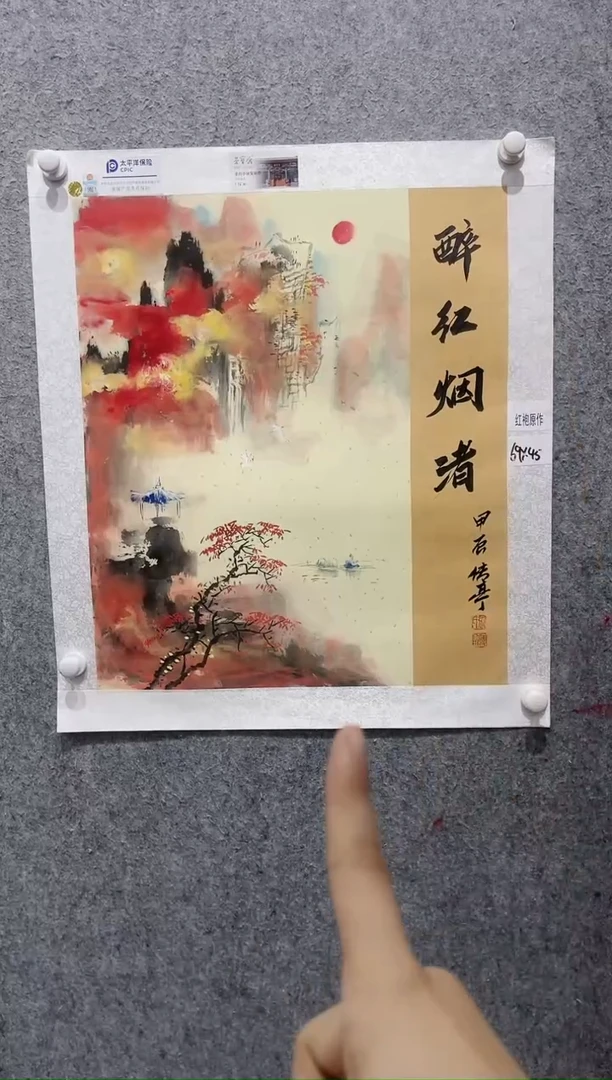 太平洋保险
CPIC
醉红烟渚
甲辰
红袍原作
69×45